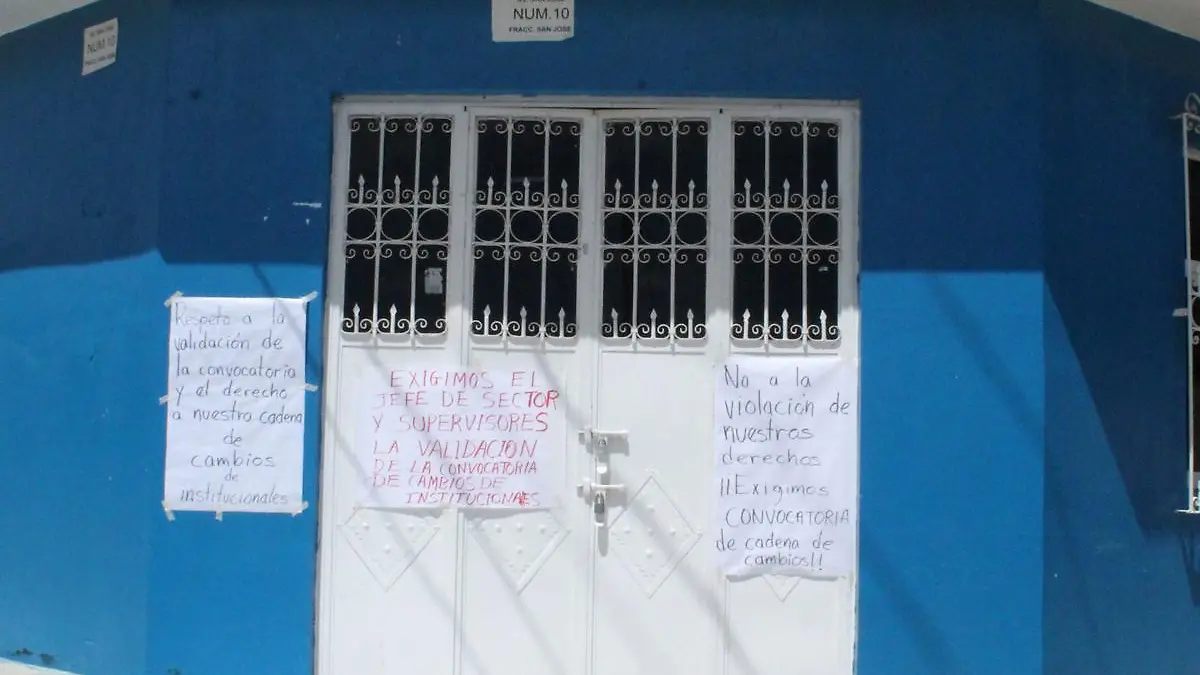 NUM.10
FRACC. SAN JOSE
NUM.10
FRACC. SAN JOSE
Respeto a la
validación de
la convocatoria
y el derecho
a nuestra cadena
de
cambios
de
institucionales
EXIGIMOS EL
JEFE DE SECTOR
Y SUPERVISORES
LA VALIDACION
DE LA CONVOCATORIA
DE CAMBIOS DE
INSTITUCIONAES
No a la
violación de
nuestros
derechos
¡¡Exigimos
CONVOCATORIA
de cadena de
cambios!!